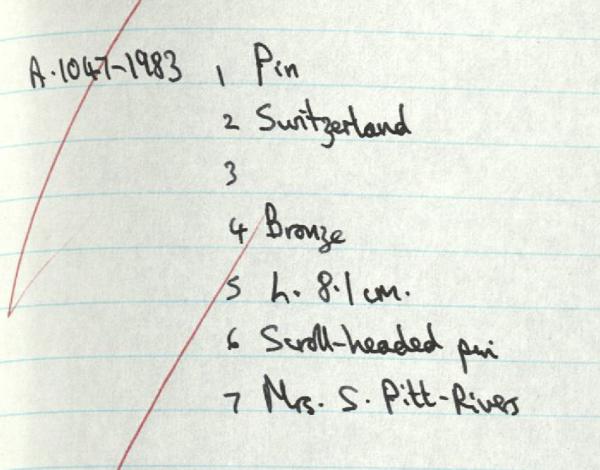 A.1047-1983 1 Pin
2 Switzerland
3
4 Bronze
5 L. 8.1 cm.
6 Scroll-headed pin
7 Mrs. S. Pitt-Rivers